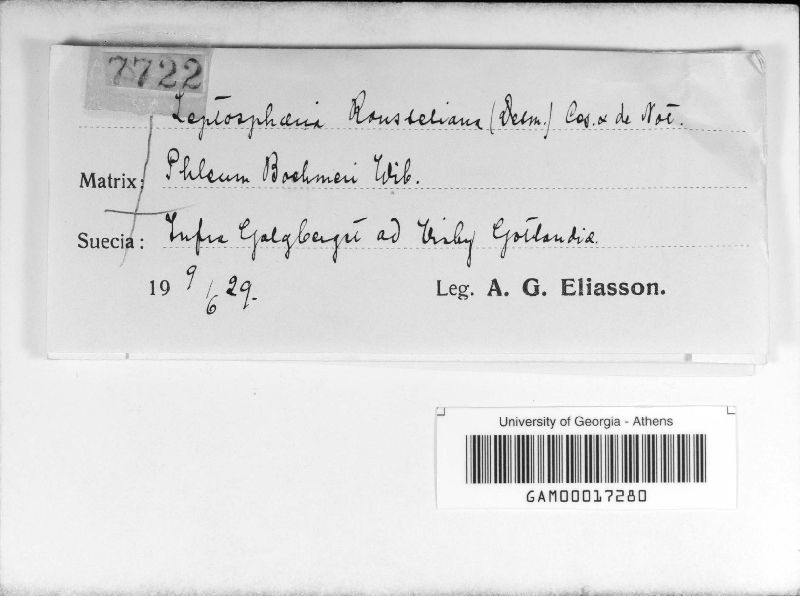 7722
Leptosphæria Rousseliana (Desm.) Ces. & de Not.
Matrix: Phleum Boehmeri Wib.
Suecia: Infra Galgberget ad Visby Gotlandiæ.
19 9/6 29.
Leg. A. G. Eliasson.
University of Georgia - Athens
GAM00017280